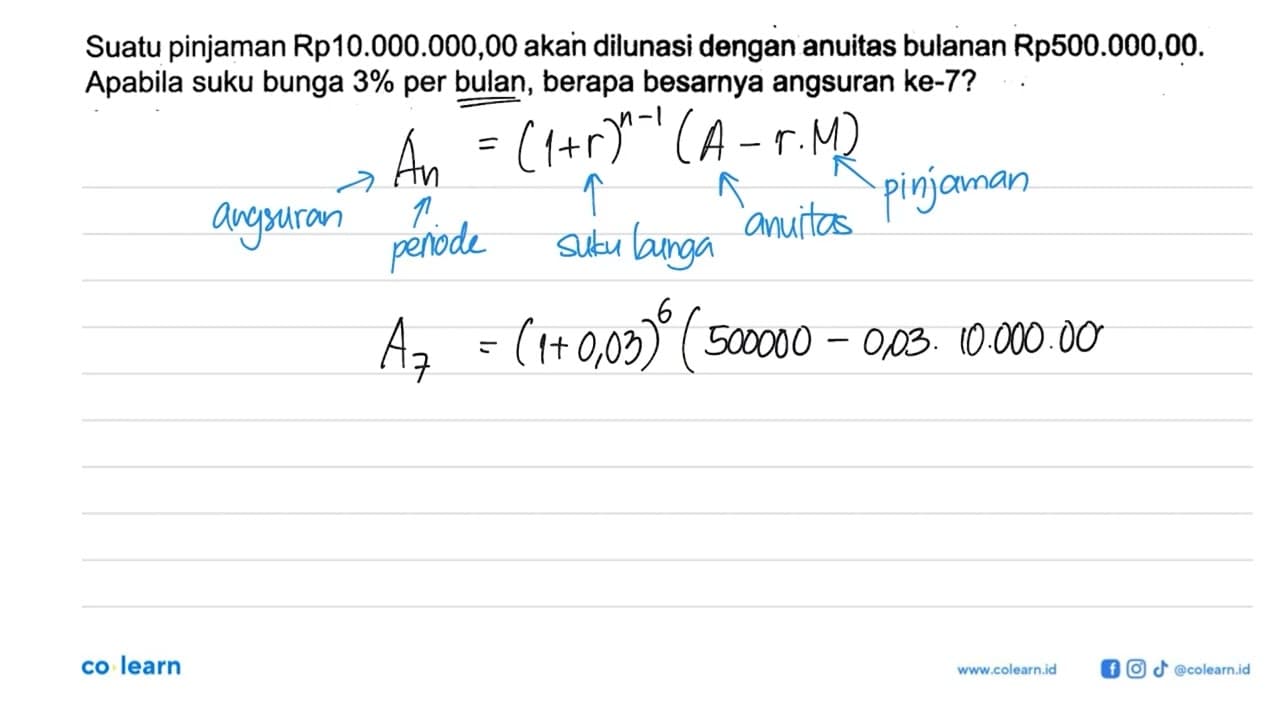 Suatu pinjaman Rp10.000.000,00 akan dilunasi dengan anuitas bulanan Rp500.000,00.
Apabila suku bunga 3% per bulan, berapa besarnya angsuran ke-7?
An = (1+r)^n-1 (A - r.M)
angsuran periode suku bunga anuitas pinjaman
A7 = (1+0,03)^6 (500000 - 0,03. 10.000.00
co learn www.colearn.id @colearn.id